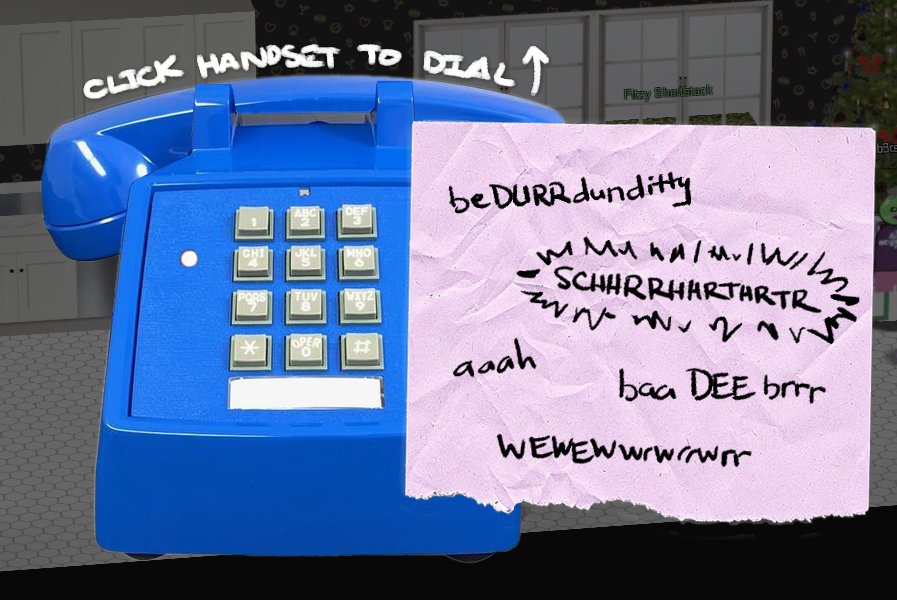 CLICK HANDSET TO DIAL
Fitzy Shortstack
1
ABC 2
DEF 3
GHI 4
JKL 5
MNO 6
PQRS 7
TUV 8
WXYZ 9
*
OPER 0
#
beDURRdunditty
SCHHRRHHRTHRTR
aaah
baa DEE brrr
WEWEWwrwrrwrr